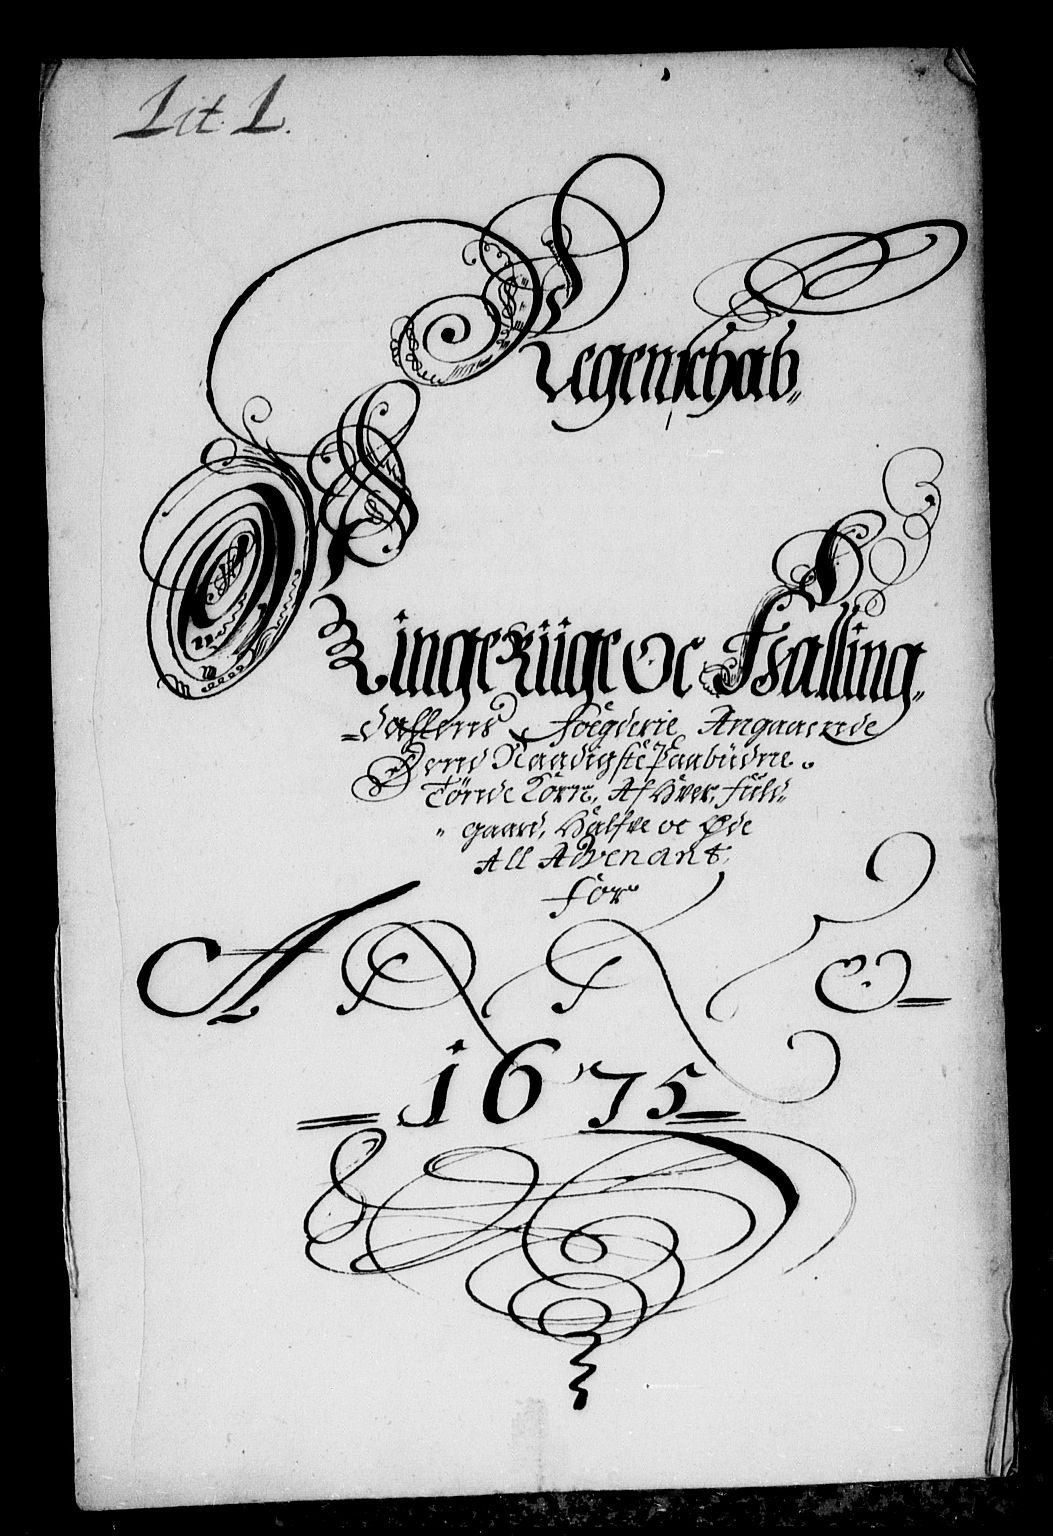 Lit. L.
Regenschab„
Ringeriige Oc Halling„
=dallens Foegderie Angaaende
Dend Naadigste Paabüdne.
Tönde Korn, Af Hver, füld„
„gaard, Halfve oc Øde
All Advenant,
for
A ñ ñ o =
= 1675 =